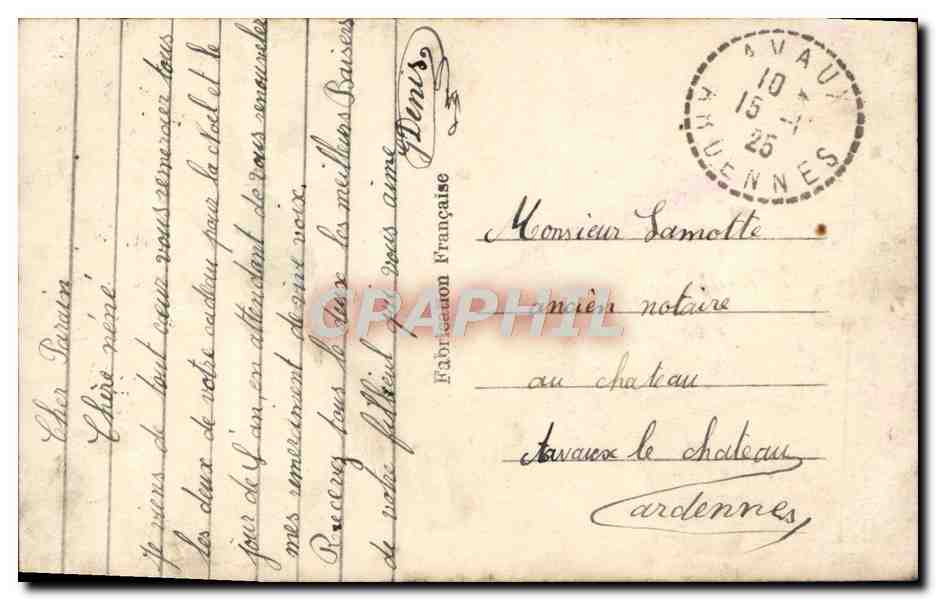 Cher Parain
Chère néné
Je viens de tout cœur vous remercier tous
les deux de votre cadeau pour la Noel et le
jour de l'an, en attendant de vous renouveler
mes remerciment de vive voix.
Recevez tous le deux les meilleurs Baisers
de votre filleul qui vous aime
Denis
Fabrication Française
AVAUX
10
15 -1
25
ARDENNES
Monsieur Lamotte
ancien notaire
au chateau
Avaux le chateau
ardennes
CRAPHIL